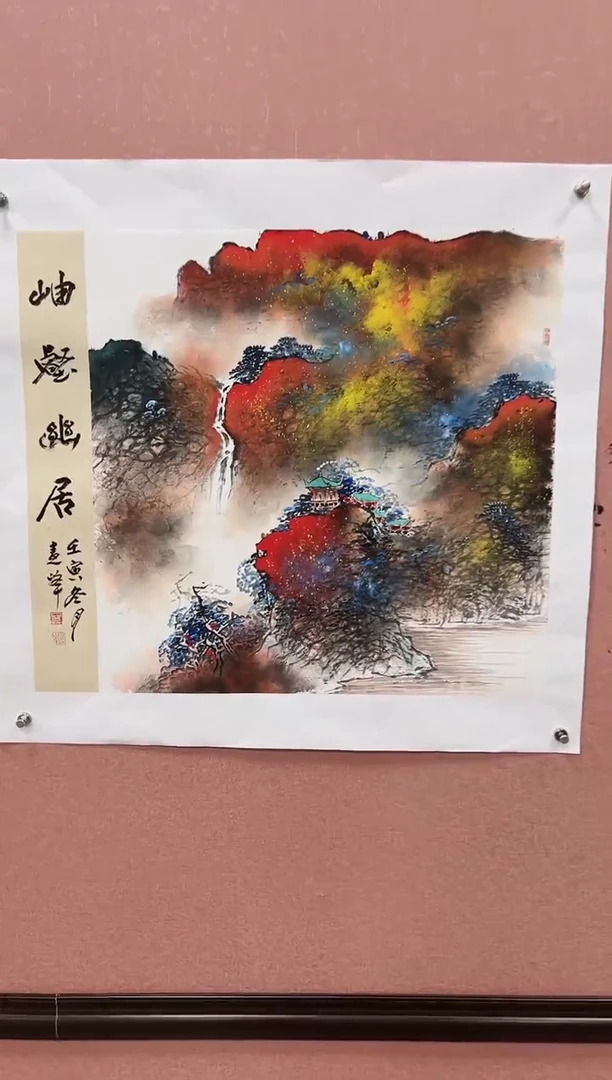 岫壑幽居
壬寅冬月